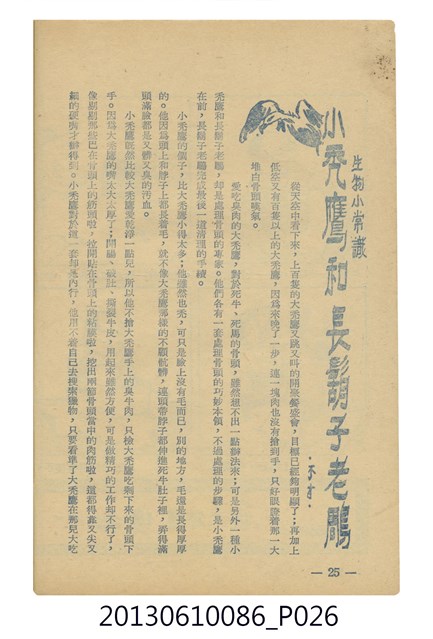 生物小常識
小禿鷹和長鬍子老鵰
從天空中看下來，上百隻的大禿鷹又跳又叫的開果餐盛會，目標已經夠明顯了；再加上
低空又有百隻以上的大禿鷹，因為來晚了一步，連一塊肉也沒有搶到手，只好眼瞪着那一大
堆白骨頭嘆氣。
愛吃臭肉的大禿鷹，對於死牛、死馬的骨頭，雖然想不出一點辦法來；可是另外一種小
禿鷹和長鬍子老鵰，却是處理骨頭的專家。他們各有一套處理骨頭的巧妙本領，不過處理的步驟，是小禿鷹
在前，長鬍子老鵰完成最後一道清理的手續。
小禿鷹的個子，比大禿鷹小得太多；他雖然也禿，可只是臉上沒有毛而已，別的地方，毛還是長得厚厚
的。他因為頭上和脖子上都長着毛，就不像大禿鷹那樣的不顧骯髒，連頭帶脖子都伸進死牛肚子裡，弄得滿
頭滿臉都是又髒又臭的污血。
小禿鷹既然比較大禿鷹愛乾淨一點兒，所以他不搶大禿鷹手上的臭牛肉，只檢大禿鷹吃剩下來的骨頭下
手。因為大禿鷹的嘴太大太厚了；開腸、破肚、撕裂牛皮，用起來雖然方便，可是做精巧的工作却不行了，
像剔剔那些巴在骨頭上的筋頭啦，拉開貼在骨頭上的粘膜啦，挖出兩節骨頭當中的肉筋啦，這都得靠又尖又
細的硬嘴才辦得到。小禿鷹對於這一套却是內行，他用不着自己去搜索獵物，只要看準了大禿鷹在那兒大吃
— 25 —
20130610086_P026